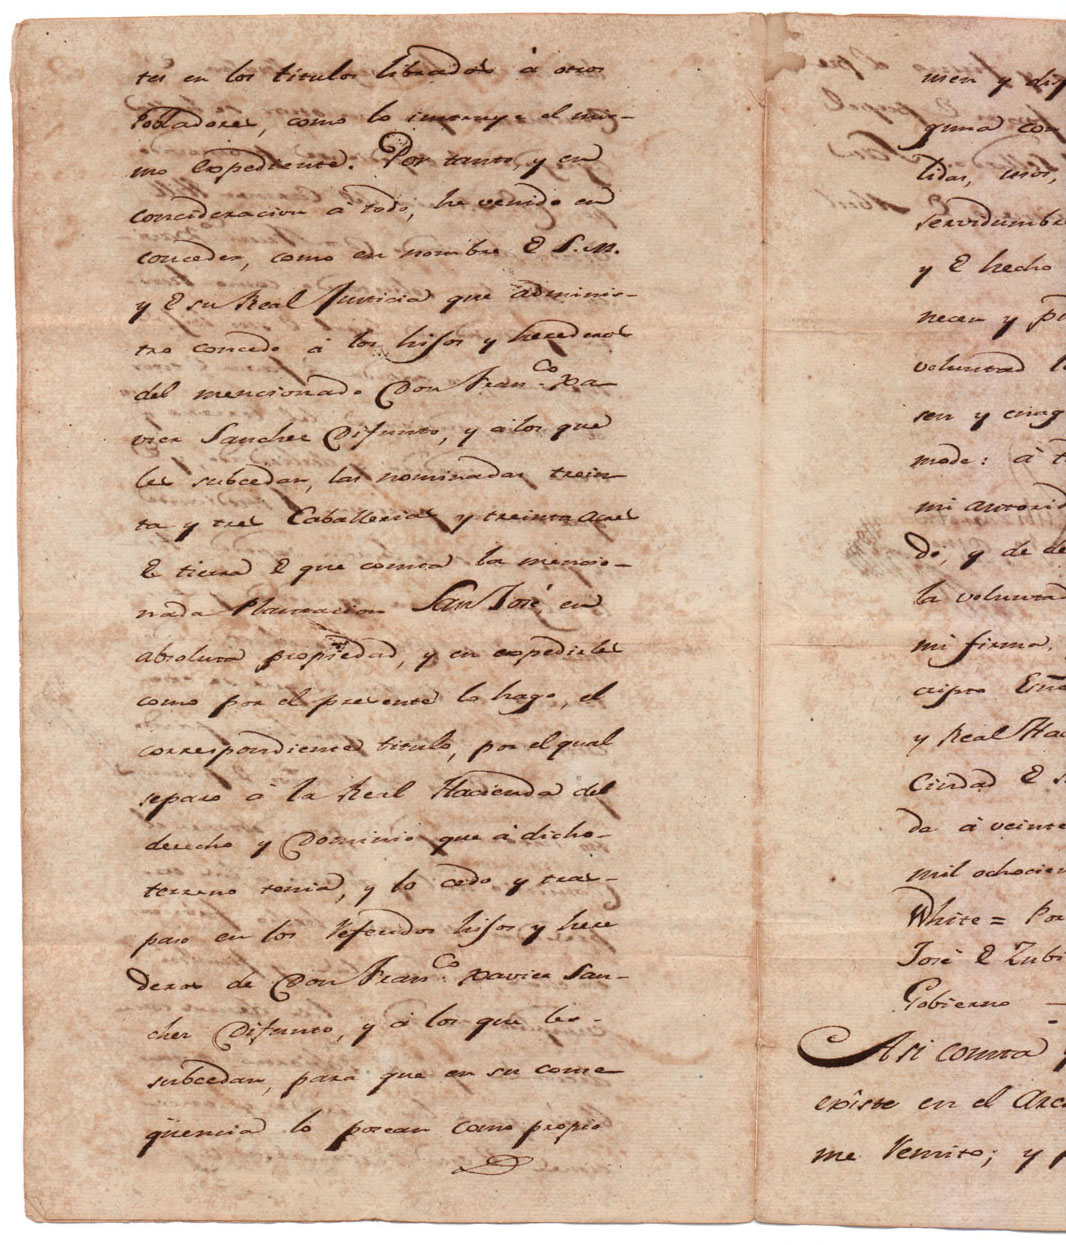 tes en los titulos librados à otros
Pobladores, como lo instruye el mis-
mo Expediente. Por tanto, y en
concideracion à todo, he venido en
conceder, como en nombre E S. M.
y E su Real Justicia que adminis-
tro concedo à los hijos y herederos
del mencionado Don Fran.co Xa-
vier Sanchez Difunto, y à los que
les subcedan, las nominadas trein-
ta y tres Caballerias y treinta acres
E tierra E que consta la mencio-
nada Plantacion San José, en
absoluta propiedad, y en expedirles
como por el presente lo hago, el
correspondiente titulo, por el qual
separo à la Real Hacienda del
derecho y Dominio que à dicho
terreno tenia, y lo cedo y tras-
paso en los referidos hijos y here
deros de Don Fran.co Xavier San-
chez Difunto, y à los que les
subcedan, para que en su conse
qüencia lo posean como propio
men y dis
guna con
lidas, usos,
servidumbre
y E hecho
necen y p
voluntad
sen y
mode: à
mi autorid
do, y de
la voluntad
mi firma,
cripto Esño
y Real Hac
Ciudad E S
da à veinte
mil ochocien
White = Por
José E Zubi
Gobierno
Asi consta
existe en el Arc
me remito; y p